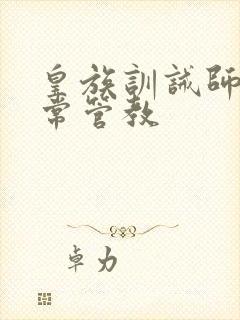 皇族訓誡師
常管教
卓力